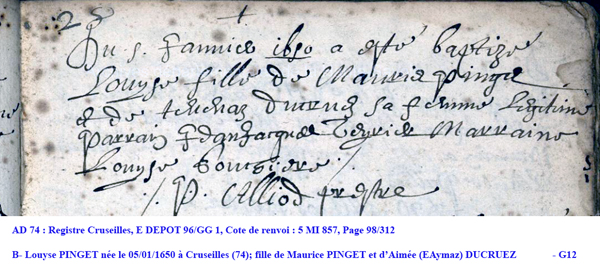 Du 5. Janvier 1650 a esté baptizé
Louyse fille de Mauris pinget
& de ducruez sa femme legitime
parrain Marraine
Louyse
P. Alliod prestre
AD 74 : Registre Cruseilles, E DEPOT 96/GG 1, Cote de renvoi : 5 MI 857, Page 98/312
B- Louyse PINGET née le 05/01/1650 à Cruseilles (74); fille de Maurice PINGET et d'Aimée (EAymaz) DUCRUEZ - G12